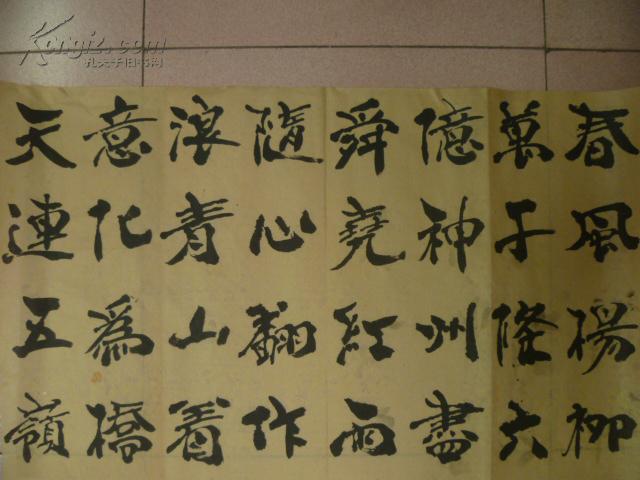 春風楊柳
萬千條六
億神州盡
舜堯紅雨
隨心翻作
浪青山着
意化為橋
天連五嶺
Kongfz.com
孔夫子旧书网